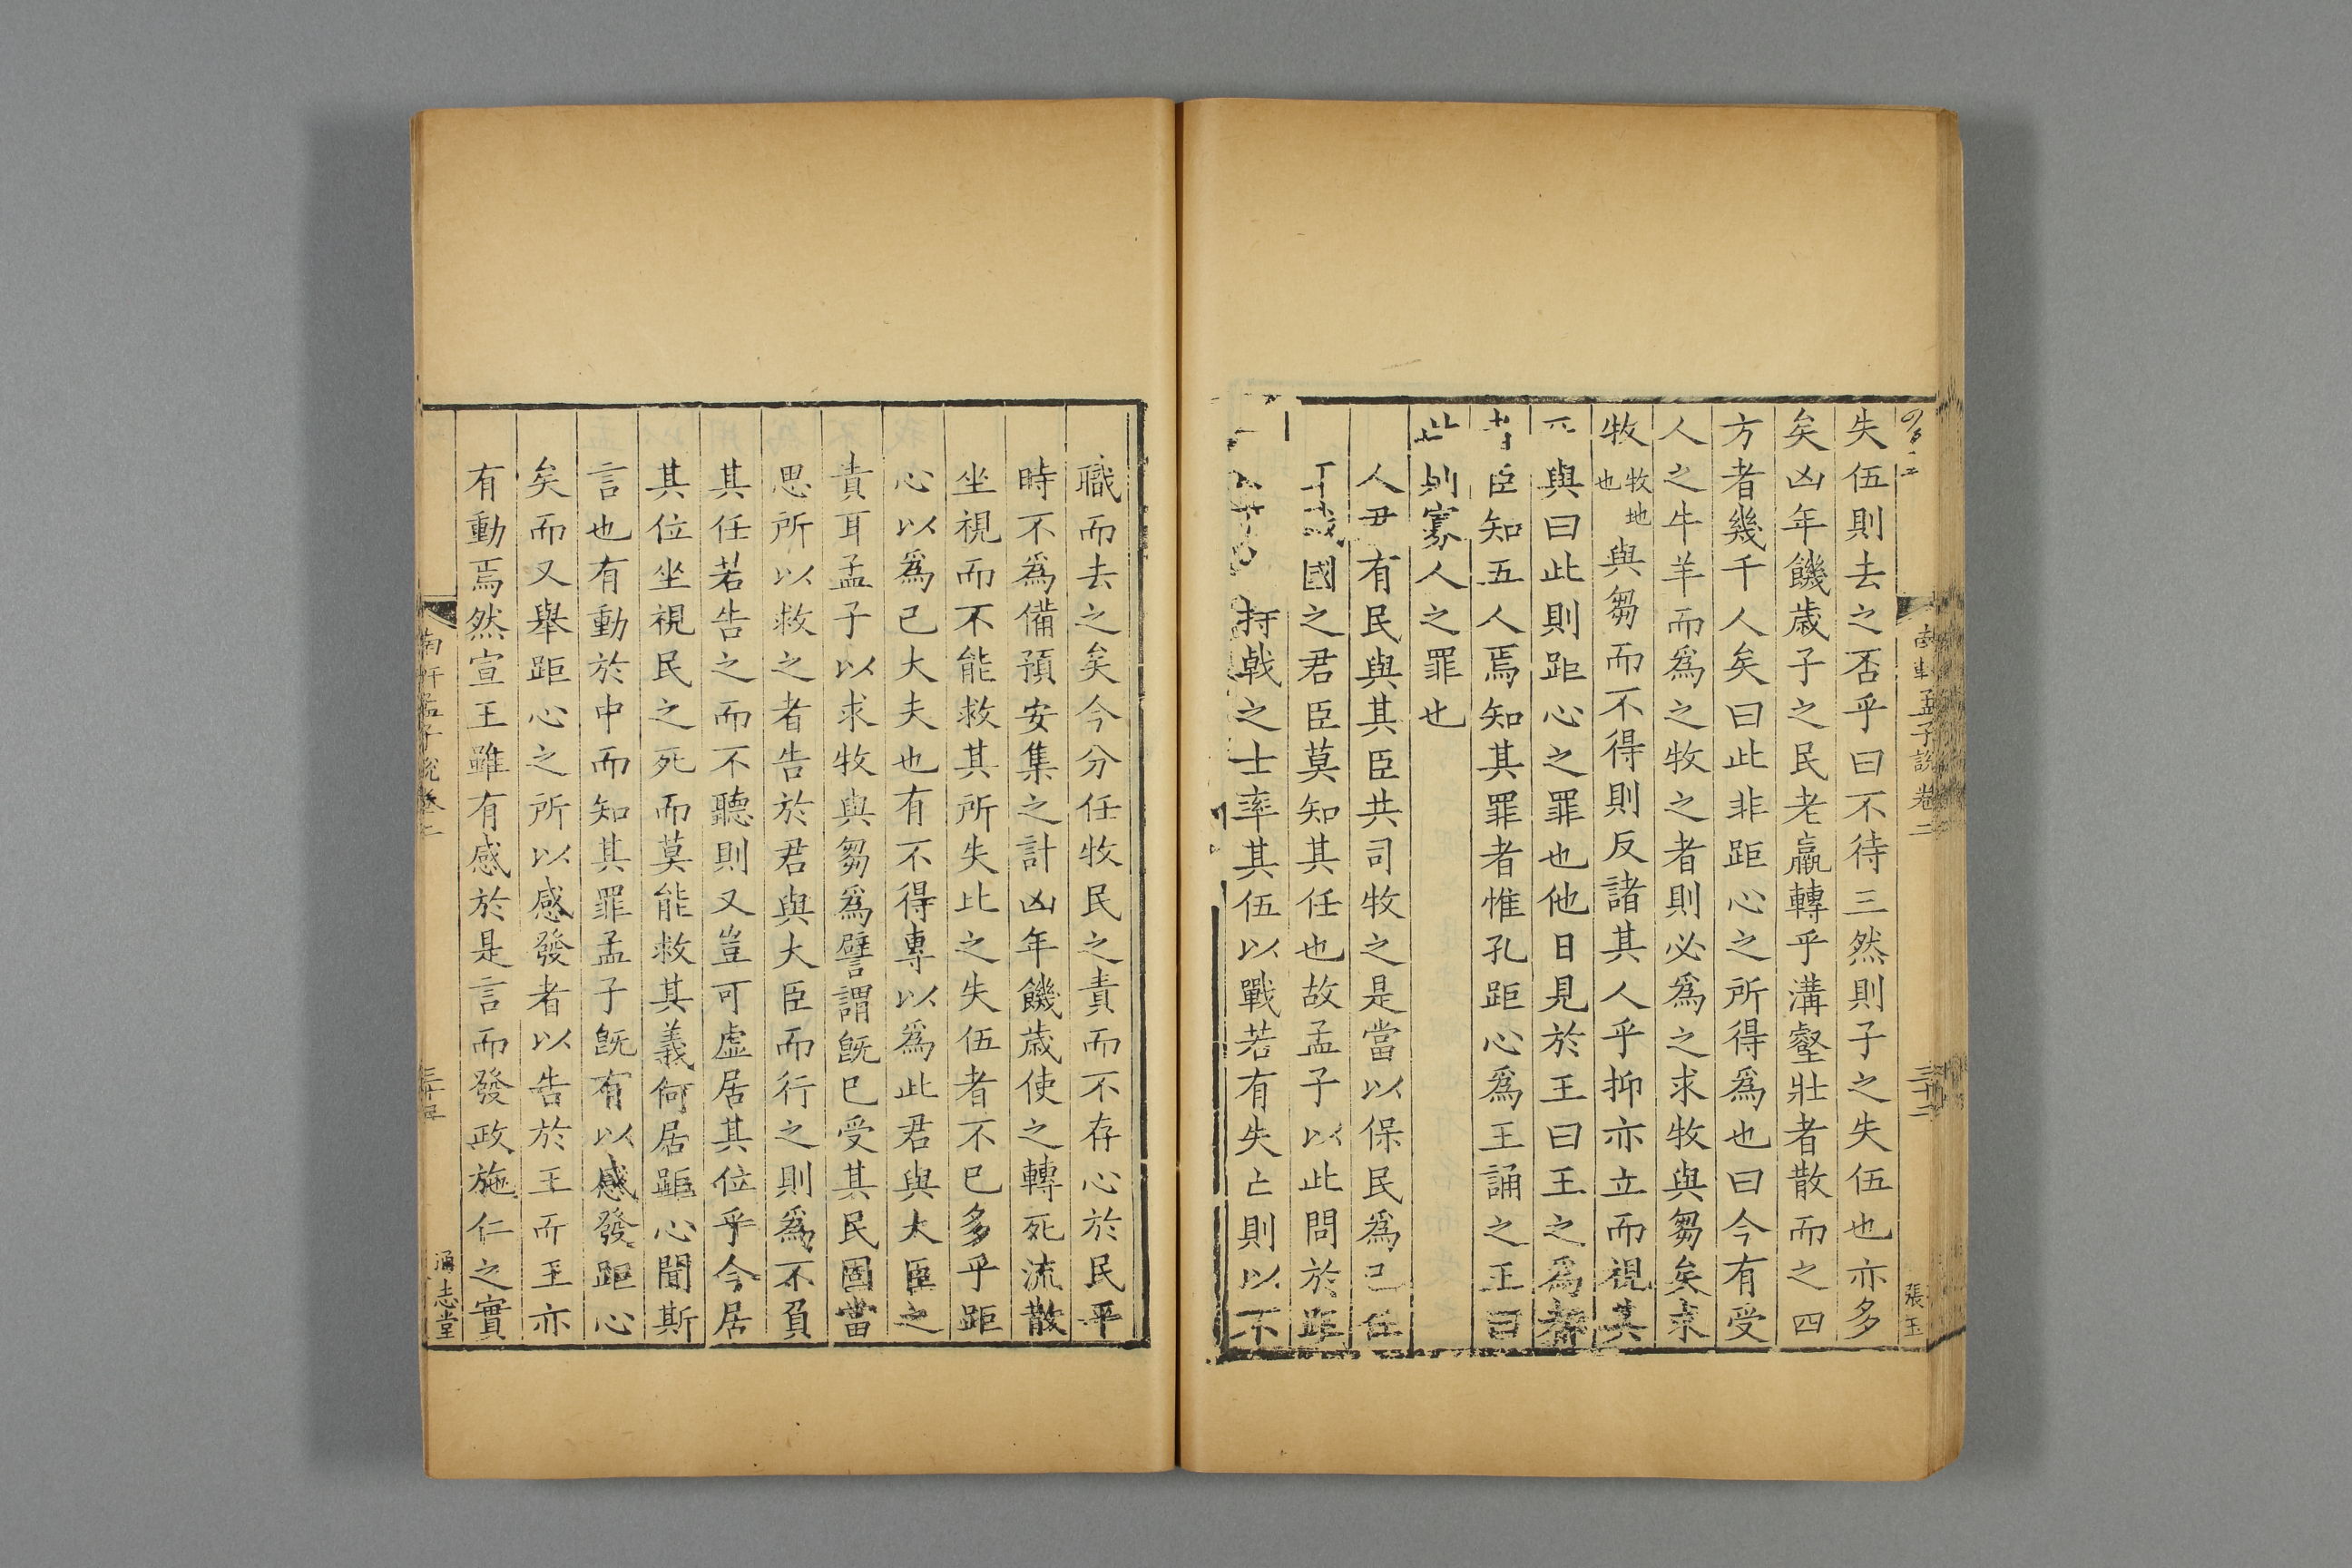 南軒孟子說卷二
張玉
失伍則去之否乎曰不待三然則子之失伍也亦多
矣凶年饑歲子之民老羸轉乎溝壑壯者散而之四
方者幾千人矣曰此非距心之所得爲也曰今有受
人之牛羊而爲之牧之者則必爲之求牧與芻矣求
牧牧地也與芻而不得則反諸其人乎抑亦立而視其
死與曰此則距心之罪也他日見於王曰王之爲都
者臣知五人焉知其罪者惟孔距心爲王誦之王曰
此則寡人之罪也
人君有民與其臣共司牧之是當以保民爲己任
國之君臣莫知其任也故孟子以此問於距
持戟之士率其伍以戰若有失亡則以不
職而去之矣今分任牧民之責而不存心於民平
時不爲備預安集之計凶年饑歲使之轉死流散
坐視而不能救其所失此之失伍者不已多乎距
心以爲已大夫也有不得專以爲此君與大臣之
責耳孟子以求牧與芻爲譬謂旣已受其民固當
思所以救之者告於君與大臣而行之則爲不負
其任若告之而不聽則又豈可虛居其位乎今居
其位坐視民之死而莫能救其義何居距心聞斯
言也有動於中而知其罪孟子旣有以感發距心
矣而又舉距心之所以感發者以告於王而王亦
有動焉然宣王雖有感於是言而發政施仁之實
南軒孟子說卷二
三十五
通志堂